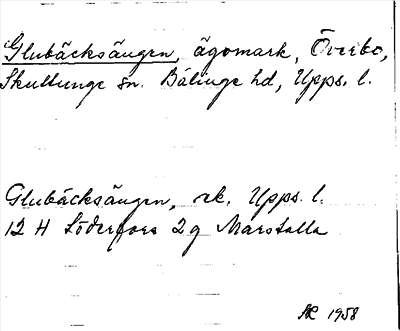 Glubäcksängen, ägomark, Överbo,
Skuttunge sn. Bälinge hd, Upps. l.
Glubäcksängen, ek. Upps. l.
12 H Söderfors 2 g Marstalla
1958